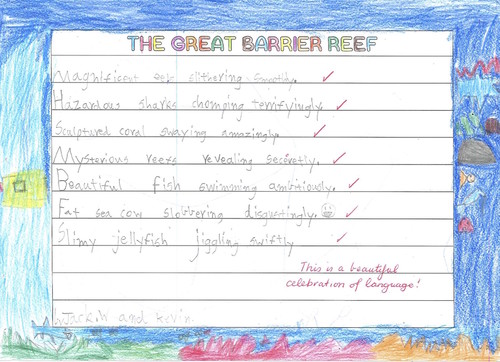 THE GREAT BARRIER REEF
Magnificent eels slithering smoothly.
Hazardous sharks chomping terrifyingly.
Sculptured coral swaying amazingly.
Mysterious reefs revealing secretly.
Beautiful fish swimming ambitiously.
Fat sea cow slobbering disgustingly.
Slimy jellyfish jiggling swiftly
This is a beautiful
celebration of language!
and Kevin